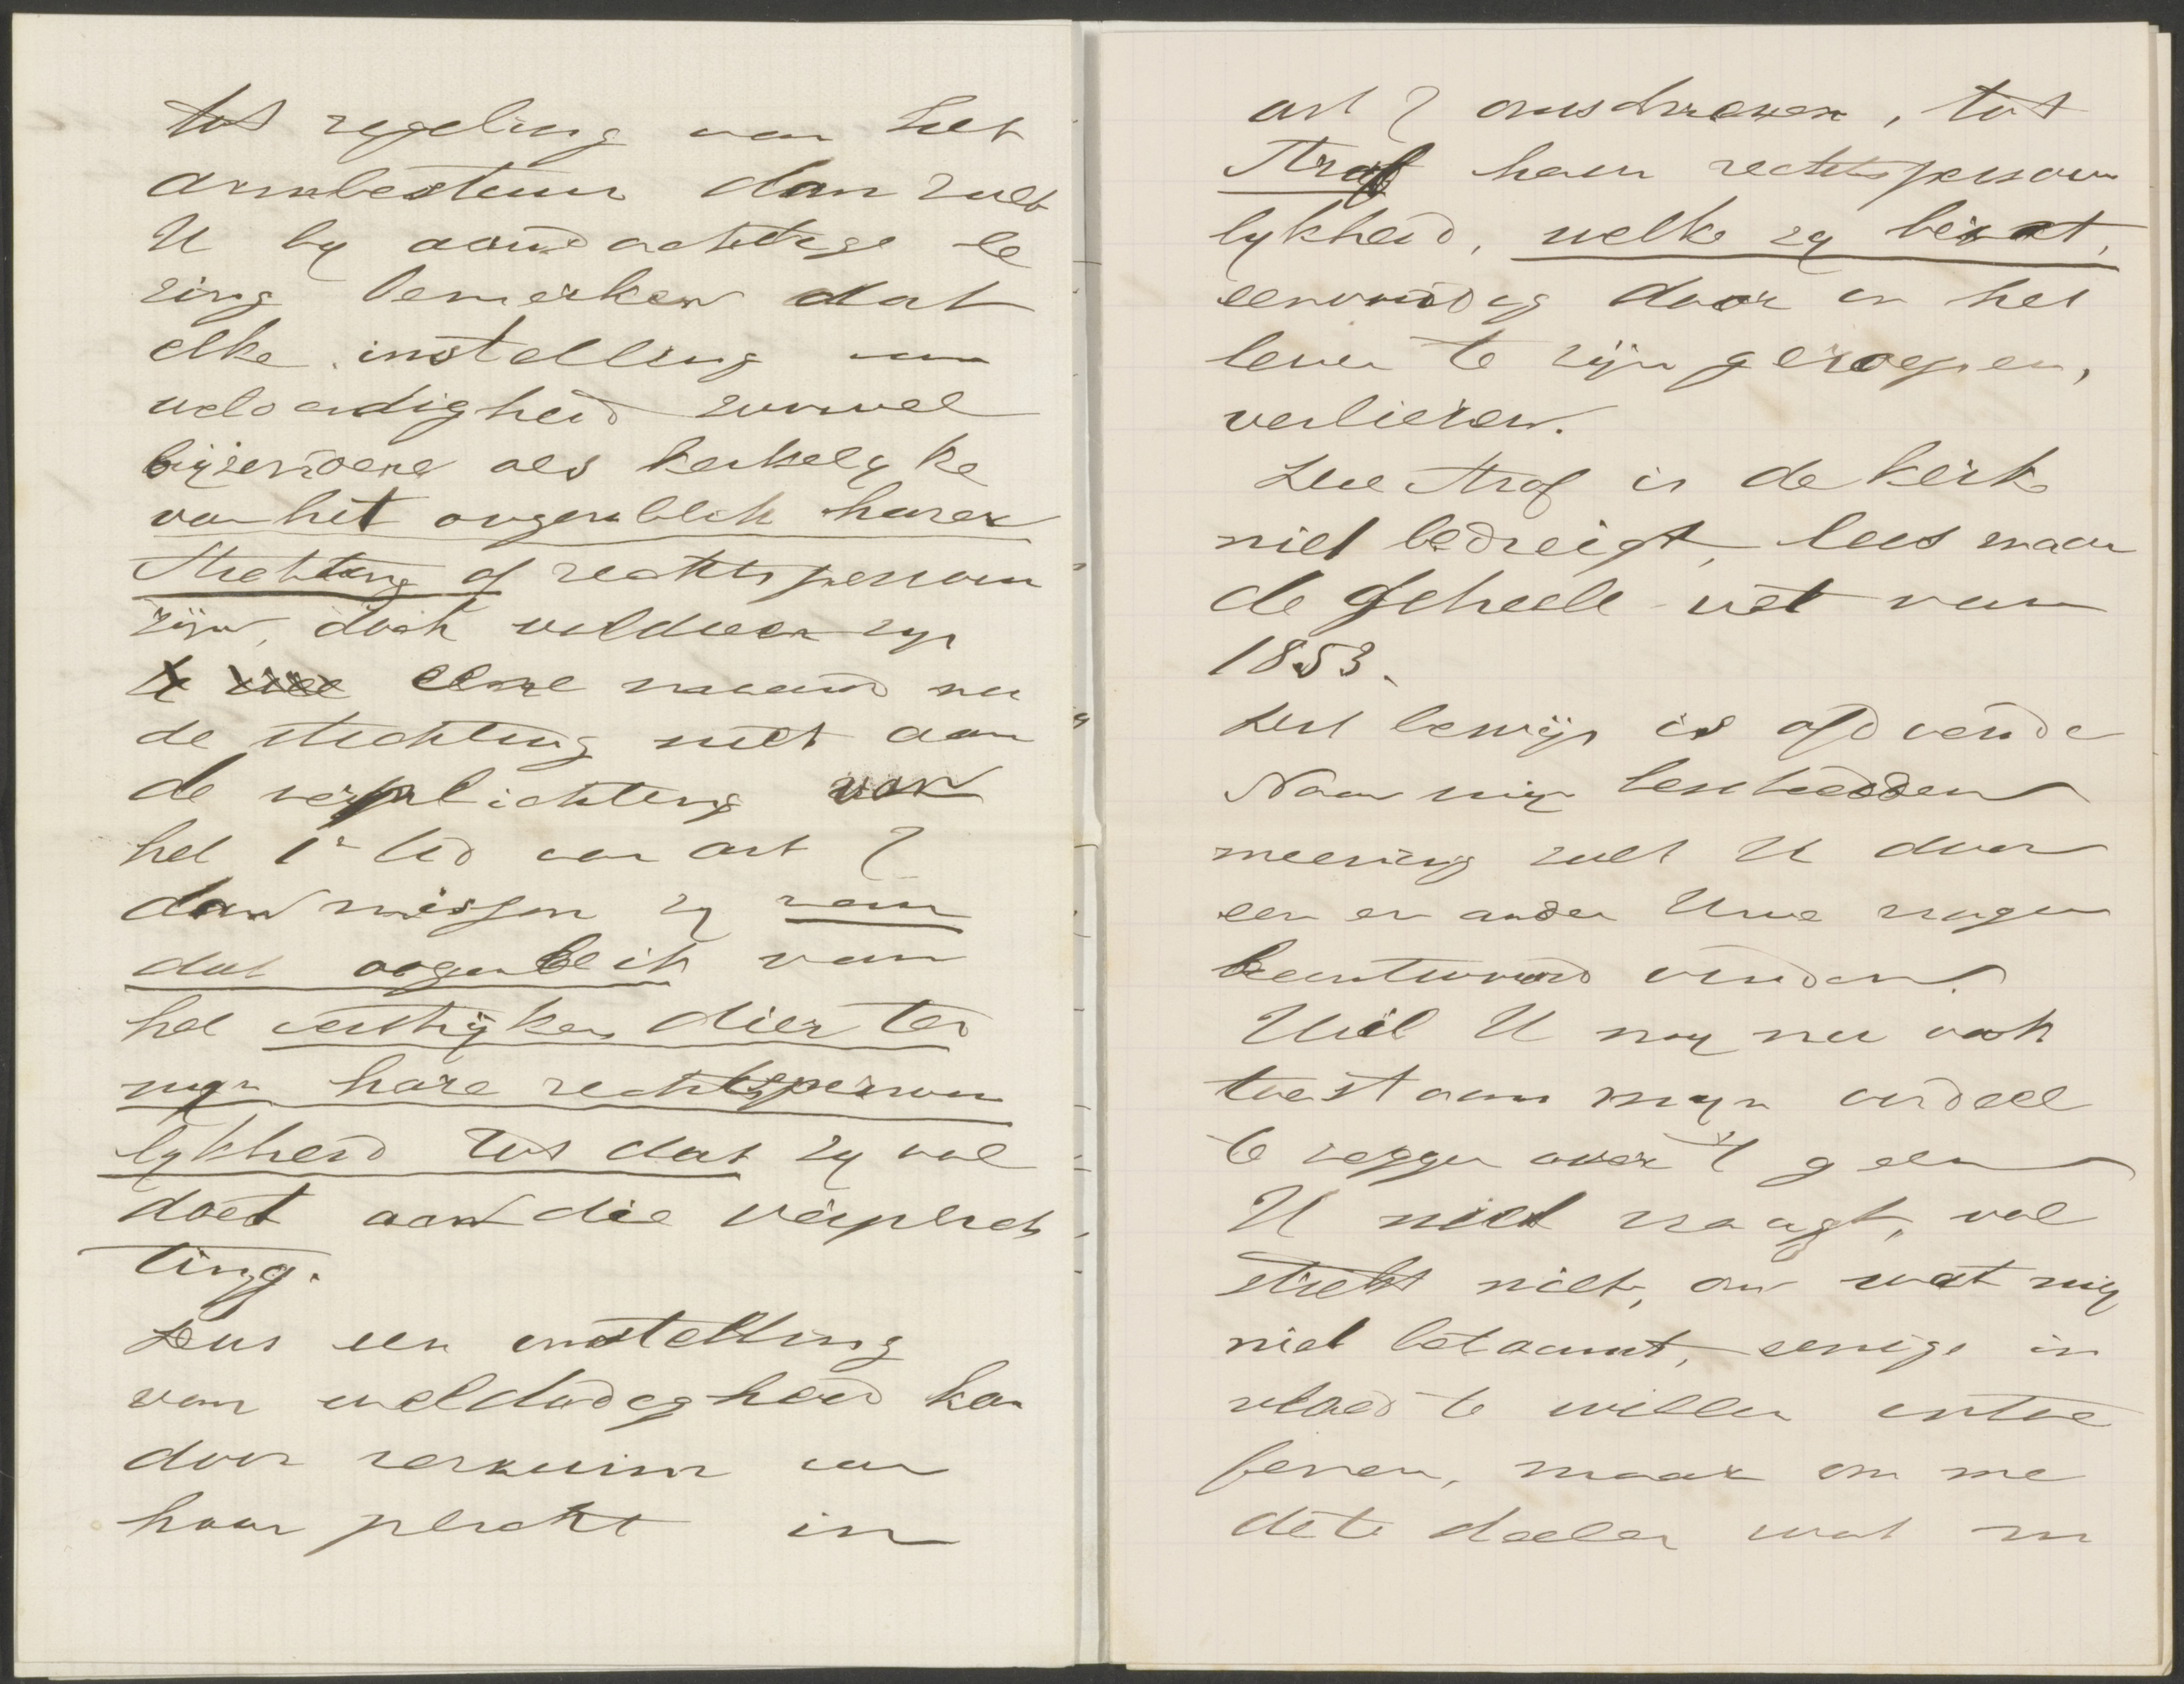 tot regeling van het
armbestuur dan zult
U by aandachtige le
zing bemerken dat
elke instelling van
weldadigheid zoowel
bijzondere als kerkelyke
van het oogenblik harer
stichting af rechtspersoon
zijn, doch voldoen zy
eene maand na
de stichting niet aan
de verplichting van
het 1e lid van art 7
dan missen zy van
dat oogenblik van
het verstryken dier ter
myn hare rechtspersoon
lykheid tot dat zy vol
doet aan die verplich
ting.
Dus een instelling
van weldadigheid kan
door verzuim van
haar plicht in
art 7 omschreven, tot
straf haar rechtspersoon
lykheid, welke zy bezat,
eenvoudig door in het
leven te zijn geroepen,
verliezen.
Die straf is de kerk
niet bedreigt, lees maar
de geheele wet van
1853.
Het bewijs is afdoende
Naar mijn bescheidden
meening zult U door
een en ander Uwe vragen
beantwoord vinden.
Wil U my nu ook
toestaan myn oordeel
te zeggen over 't geen
U niet vraagt, vol
strekt niet, om wat mij
niet betaamt, eenige in
vloed te willen uitoe
fenen, maar om me
de te deelen wat m